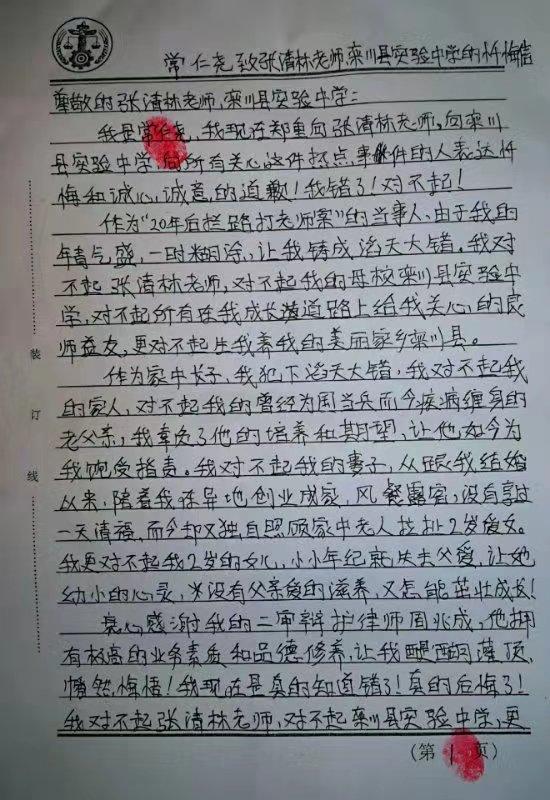 常仁尧致张清林老师,栾川县实验中学的忏悔信
尊敬的张清林老师,栾川县实验中学:
我是常仁尧,我现在郑重向张清林老师,向栾川
县实验中学,向所有关心这件起点事件的人表达忏
悔和诚心,诚意的道歉!我错了!对不起!
作为“20年后拦路打老师案”的当事人,由于我的
年青气盛,一时糊涂,让我铸成滔天大错。我对
不起张清林老师,对不起我的母校栾川县实验中
学,对不起所有在我成长道路上给我关心的良
师益友,更对不起生我养我的美丽家乡栾川县。
作为家中长子,我犯下滔天大错,我对不起我
的家人,对不起我的曾经为国当兵而今疾病缠身的
老父亲,我辜负了他的培养和期望,让他如今为
我饱受指责。我对不起我的妻子,从跟我结婚
以来,陪着我在异地创业成家,风餐露宿,没有享过
一天清福,而今却又独自照顾家中老人拉扯2岁爱女。
我更对不起我2岁的女儿,小小年纪就失去父爱,让她
幼小的心灵,没有父亲爱的滋养,又怎能茁壮成长!
衷心感谢我的二审辩护律师周兆成,他拥
有极高的业务素质和品德修养,让我醍醐灌顶,
幡然悔悟!我现在是真的知道错了!真的后悔了!
我对不起张清林老师,对不起栾川县实验中学,更
装
订
线
(第 1 页)